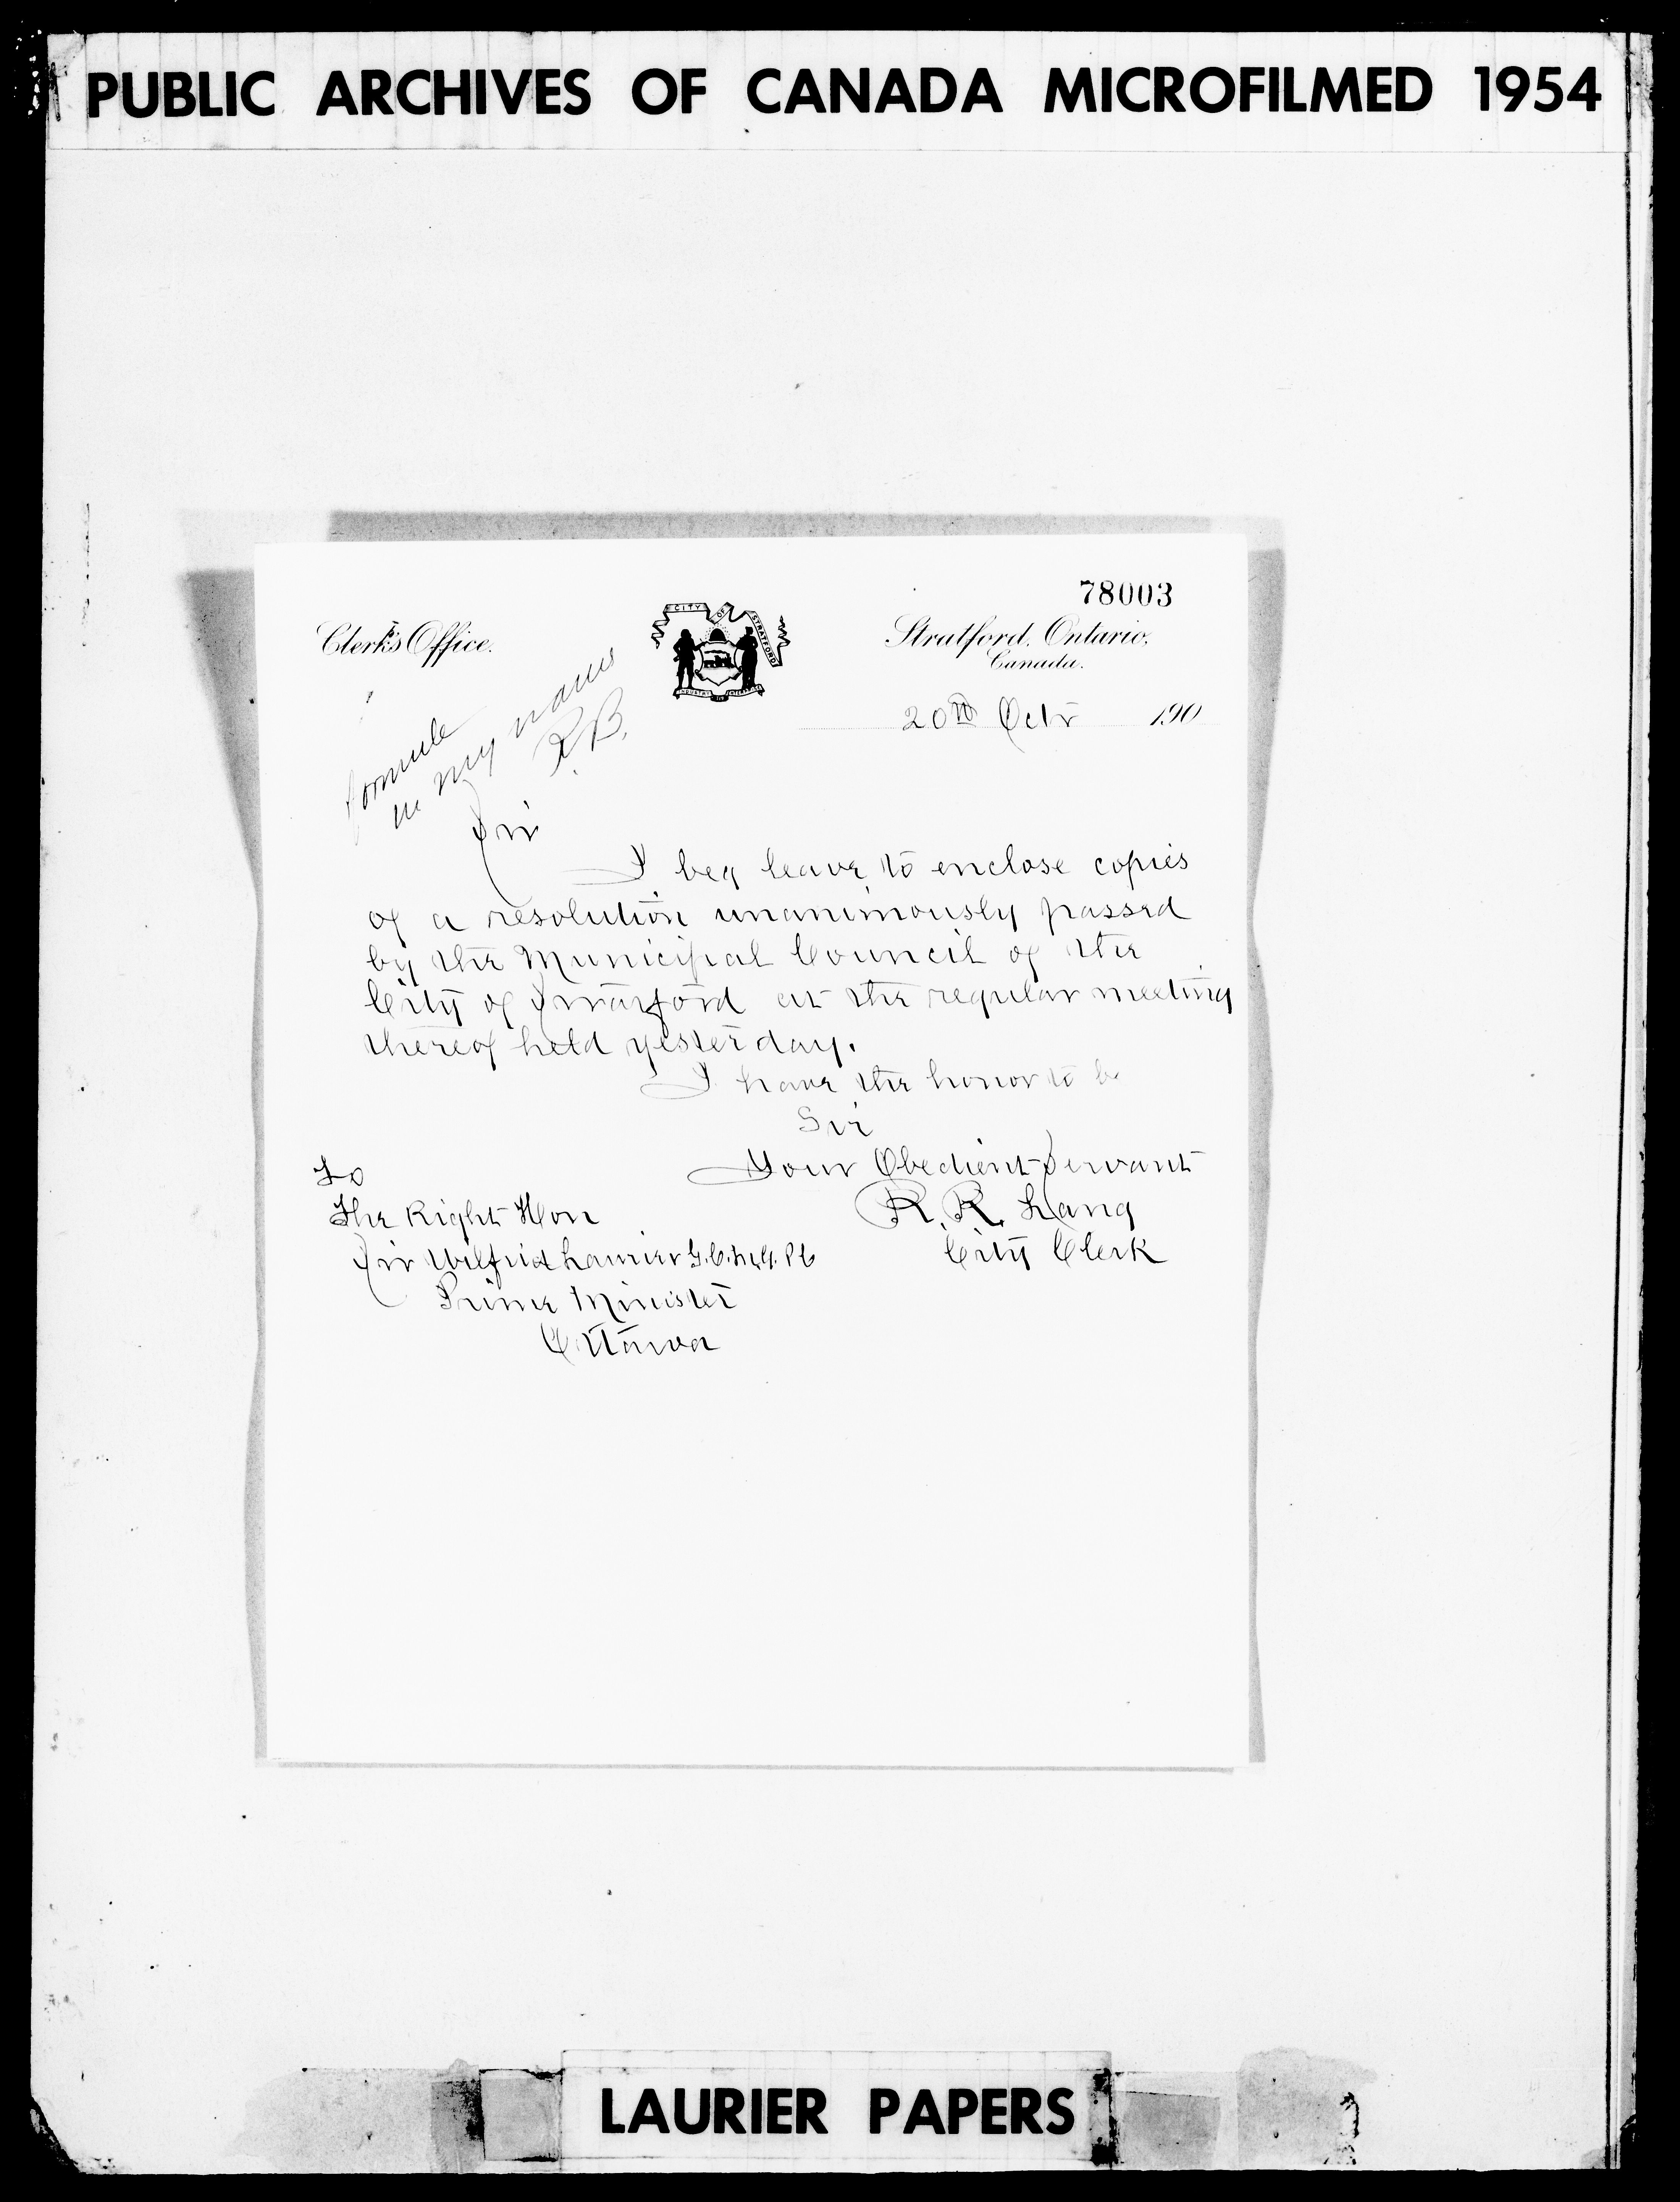 PUBLIC ARCHIVES OF CANADA MICROFILMED 1954
78003
Clerk's Office.
CITY OF STRATFORD
Stratford, Ontario,
Canada.
20th Octr 190
formule
in my name
R.B.
Sir
I beg leave to enclose copies
of a resolution unanimously passed
by the Municipal Council of the
City of Stratford at the regular meeting
thereof held yesterday.
I have the honor to be
Sir
Your Obedient Servant
R. R. Lang
City Clerk
To
The Right Hon
Sir Wilfrid Laurier G.C.M.G. P C
Prime Minister
Ottawa
LAURIER PAPERS